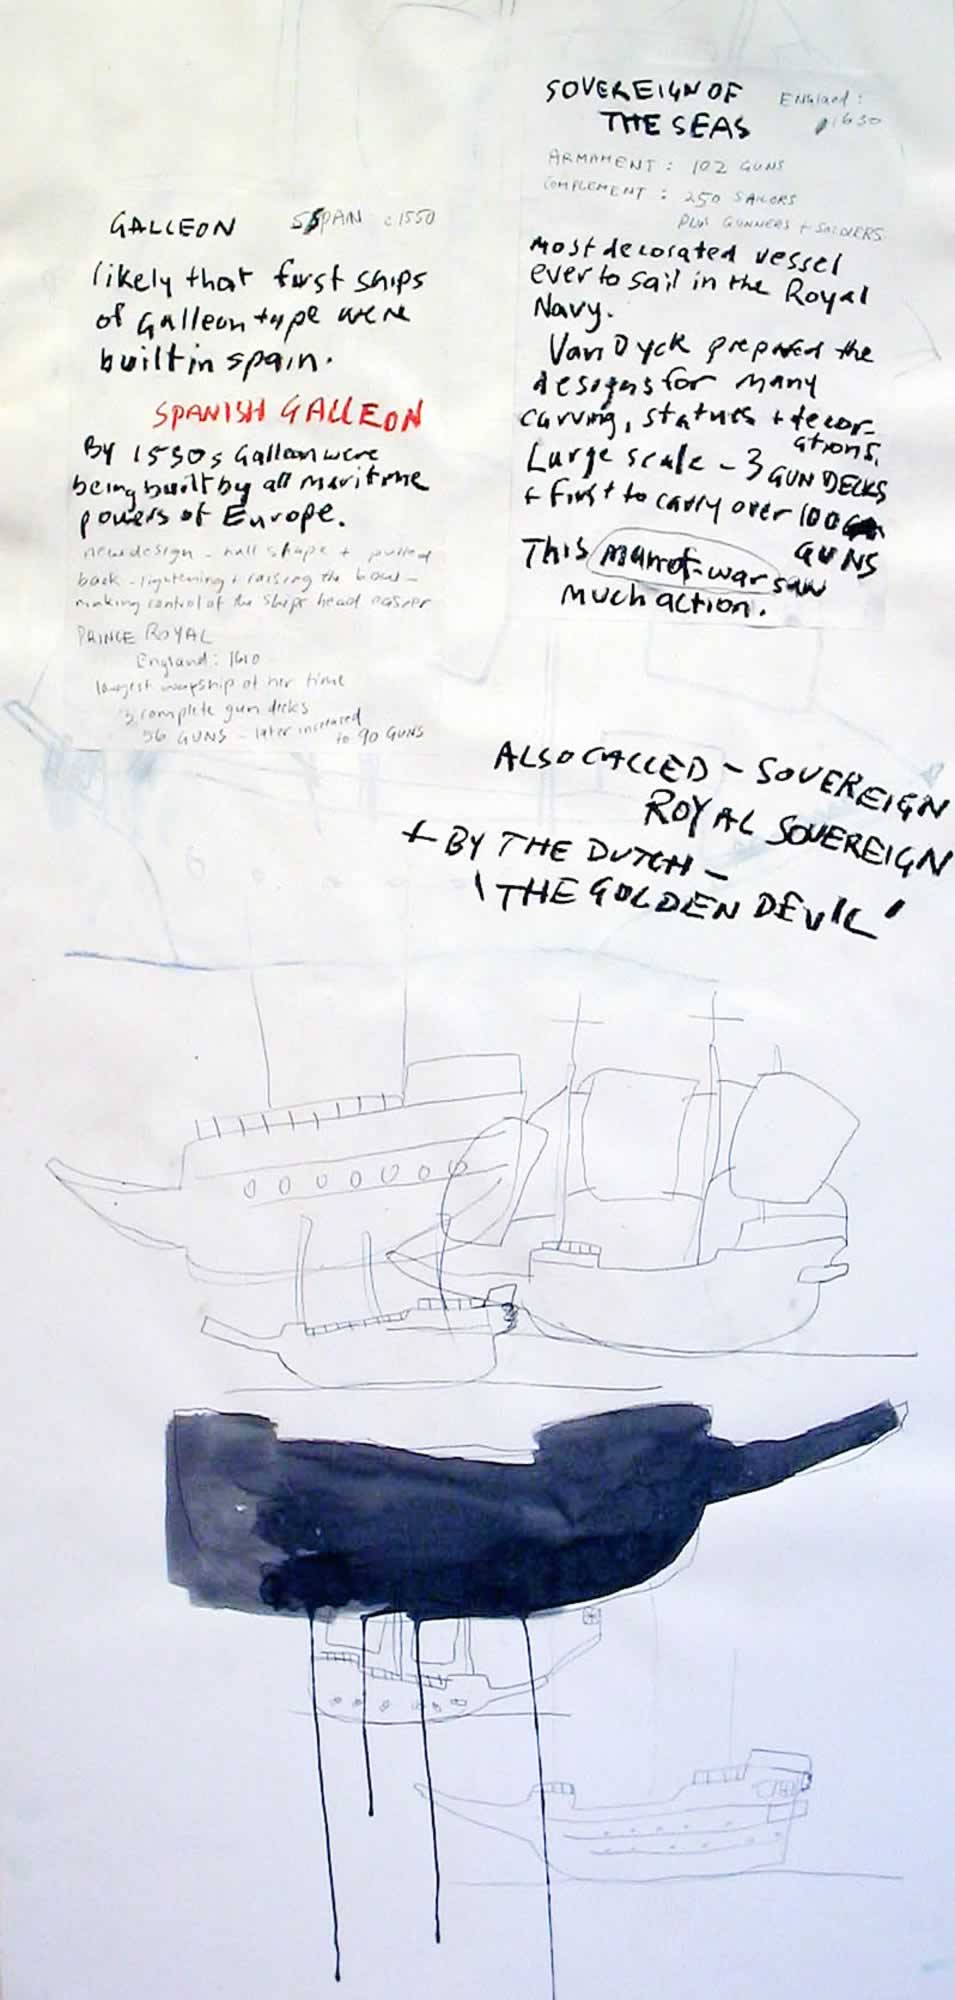 GALLEON SPAIN c1550
likely that first ships
of Galleon type were
built in spain.
SPANISH GALLEON
By 1550s Galleon were
being built by all maritime
powers of Europe.
new design - hull shape + pulled
back - lightening + raising the bow -
making control of the ships head easier
PRINCE ROYAL
England: 1610
largest warship of her time
3 complete gun decks
56 GUNS - later increased
to 90 GUNS
SOVEREIGN OF England:
THE SEAS 1630
ARMAMENT: 102 GUNS
COMPLEMENT: 250 SAILORS
PLUS GUNNERS + SOLDIERS
Most decorated vessel
ever to sail in the Royal
Navy.
Van Dyck prepared the
designs for many
carving, statues + decor-
ations.
Large scale - 3 GUN DECKS
+ first to carry over 100
GUNS
This man-of-war saw
much action.
ALSO CALLED - SOVEREIGN
ROYAL SOVEREIGN
+ BY THE DUTCH -
'THE GOLDEN DEVIL'